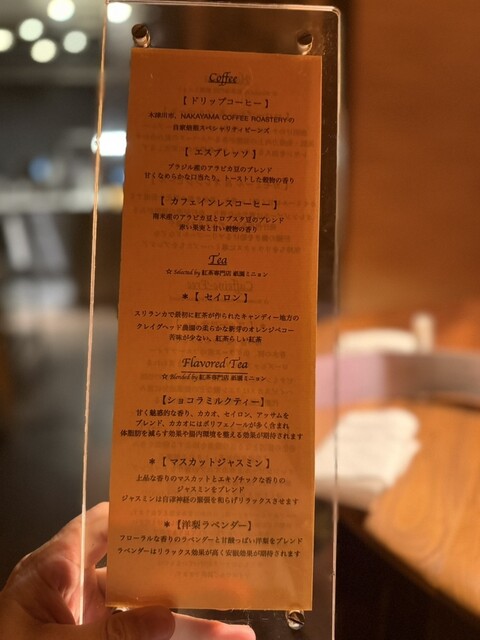 Coffee
【 ドリップコーヒー 】
木縄出室、NAKAYAMA COFFEE ROASTERYの
自家焙煎スペシャリティビーンズ
【 エスプレッソ 】
ブラジル産のアラビカ豆のブレンド
甘くなめらかな口当たり。トーストした穀物の香り
【 カフェインレスコーヒー 】
南米産のアラビカ豆とロブスタ豆のブレンド
赤い果実と甘い穀物の香り
Tea
☆ Selected by 紅茶専門店 祇園ミニョン
＊【 セイロン 】
スリランカで最初に紅茶が作られたキャンディー地方の
クレイグヘッド農園の柔らかな新芽のオレンジペコー
苦味が少ない、紅茶らしい紅茶
Flavored Tea
☆ Blended by 紅茶専門店 祇園ミニョン
【ショコラミルクティー】
甘く魅惑的な香り、カカオ、セイロン、アッサムを
ブレンド、カカオにはポリフェノールが多く含まれ
体脂肪を減らす効果や腸内環境を整える効果が期待されます
＊【マスカットジャスミン】
上品な香りのマスカットとエキゾチックな香りの
ジャスミンをブレンド
ジャスミンは自律神経の緊張を和らげリラックスさせます
＊【洋梨ラベンダー】
フローラルな香りのラベンダーと甘酸っぱい洋梨をブレンド
ラベンダーはリラックス効果が高く安眠効果が期待されます